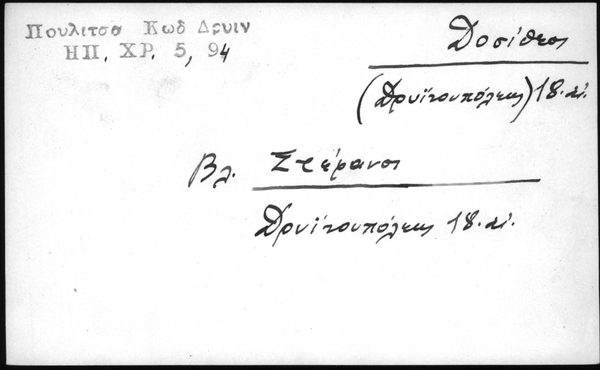 Πουλιτσα Κωδ Δρυιν
ΗΠ. ΧΡ. 5, 94
Δοσίθεος
(Δρυϊνουπόλεως) 18. αἰ.
Βλ. Στέφανος
Δρυϊνουπόλεως 18. αἰ.